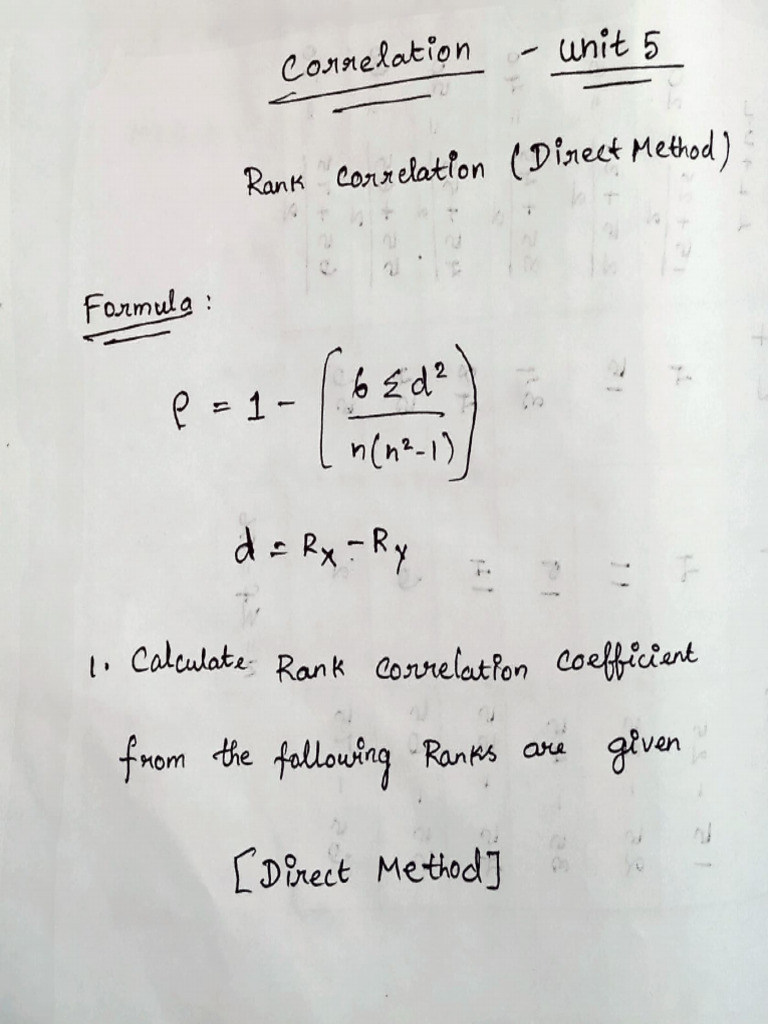 Correlation - Unit 5
Rank Correlation (Direct Method)
Formula :
ρ = 1 - ( 6 Σd² / n(n²-1) )
d = Rx - Ry
1. Calculate Rank correlation coefficient
from the following Ranks are given
[Direct Method]